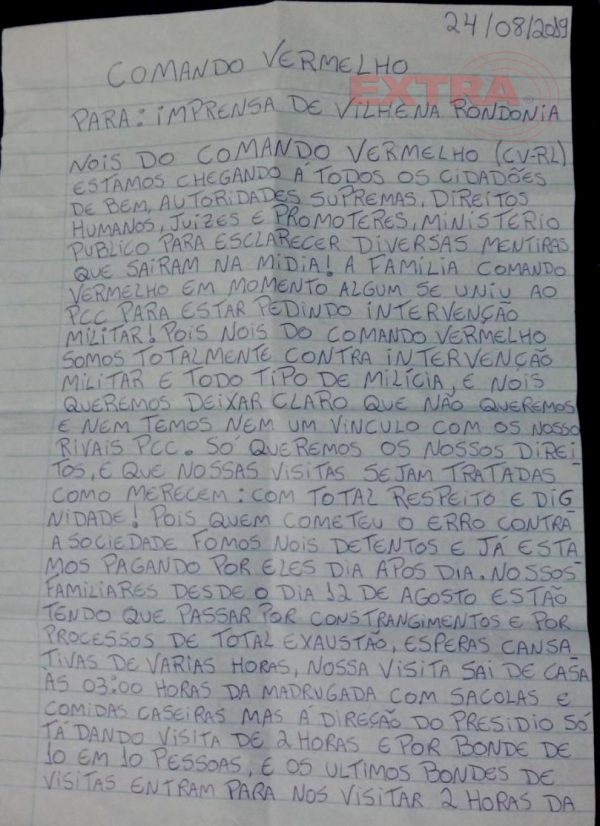 24/08/2019
COMANDO VERMELHO
EXTRA
PARA: IMPRENSA DE VILHENA RONDONIA
NOIS DO COMANDO VERMELHO (CV-RL)
ESTAMOS CHEGANDO Á TODOS OS CIDADÕES
DE BEM, AUTORIDADES SUPREMAS, DIREITOS
HUMANOS, JUIZES E PROMOTERES, MINISTÉRIO
PUBLICO PARA ESCLARECER DIVERSAS MENTIRAS
QUE SAIRAM NA MIDIA! A FAMILIA COMANDO
VERMELHO EM MOMENTO ALGUM SE UNIU AO
PCC PARA ESTAR PEDINDO INTERVENÇÃO
MILITAR! POIS NOIS DO COMANDO VERMELHO
SOMOS TOTALMENTE CONTRA INTERVENÇÃO
MILITAR E TODO TIPO DE MILÍCIA, E NOIS
QUEREMOS DEIXAR CLARO QUE NÃO QUEREMOS
E NEM TEMOS NEM UM VINCULO COM OS NOSSO
RIVAIS PCC. SÓ QUEREMOS OS NOSSOS DIREI
TOS, E QUE NOSSAS VISITAS SEJAM TRATADAS
COMO MERECEM: COM TOTAL RESPEITO E DIG
NIDADE! POIS QUEM COMETEU O ERRO CONTRA
A SOCIEDADE FOMOS NOIS DETENTOS E JÁ ESTA
MOS PAGANDO POR ELES DIA APOS DIA. NOSSOS
FAMILIARES DESDE O DIA 12 DE AGOSTO ESTÃO
TENDO QUE PASSAR POR CONSTRANGIMENTOS E POR
PROCESSOS DE TOTAL EXAUSTÃO, ESPERAS CANSA
TIVAS DE VARIAS HORAS, NOSSA VISITA SAI DE CASA
ÁS 03:00 HORAS DA MADRUGADA COM SACOLAS E
COMIDAS CASEIRAS MAS Á DIREÇÃO DO PRESIDIO SÓ
TÁ DANDO VISITA DE 2 HORAS E POR BONDE DE
10 EM 10 PESSOAS, E OS ULTIMOS BONDES DE
VISITAS ENTRAM PARA NOS VISITAR 2 HORAS DA